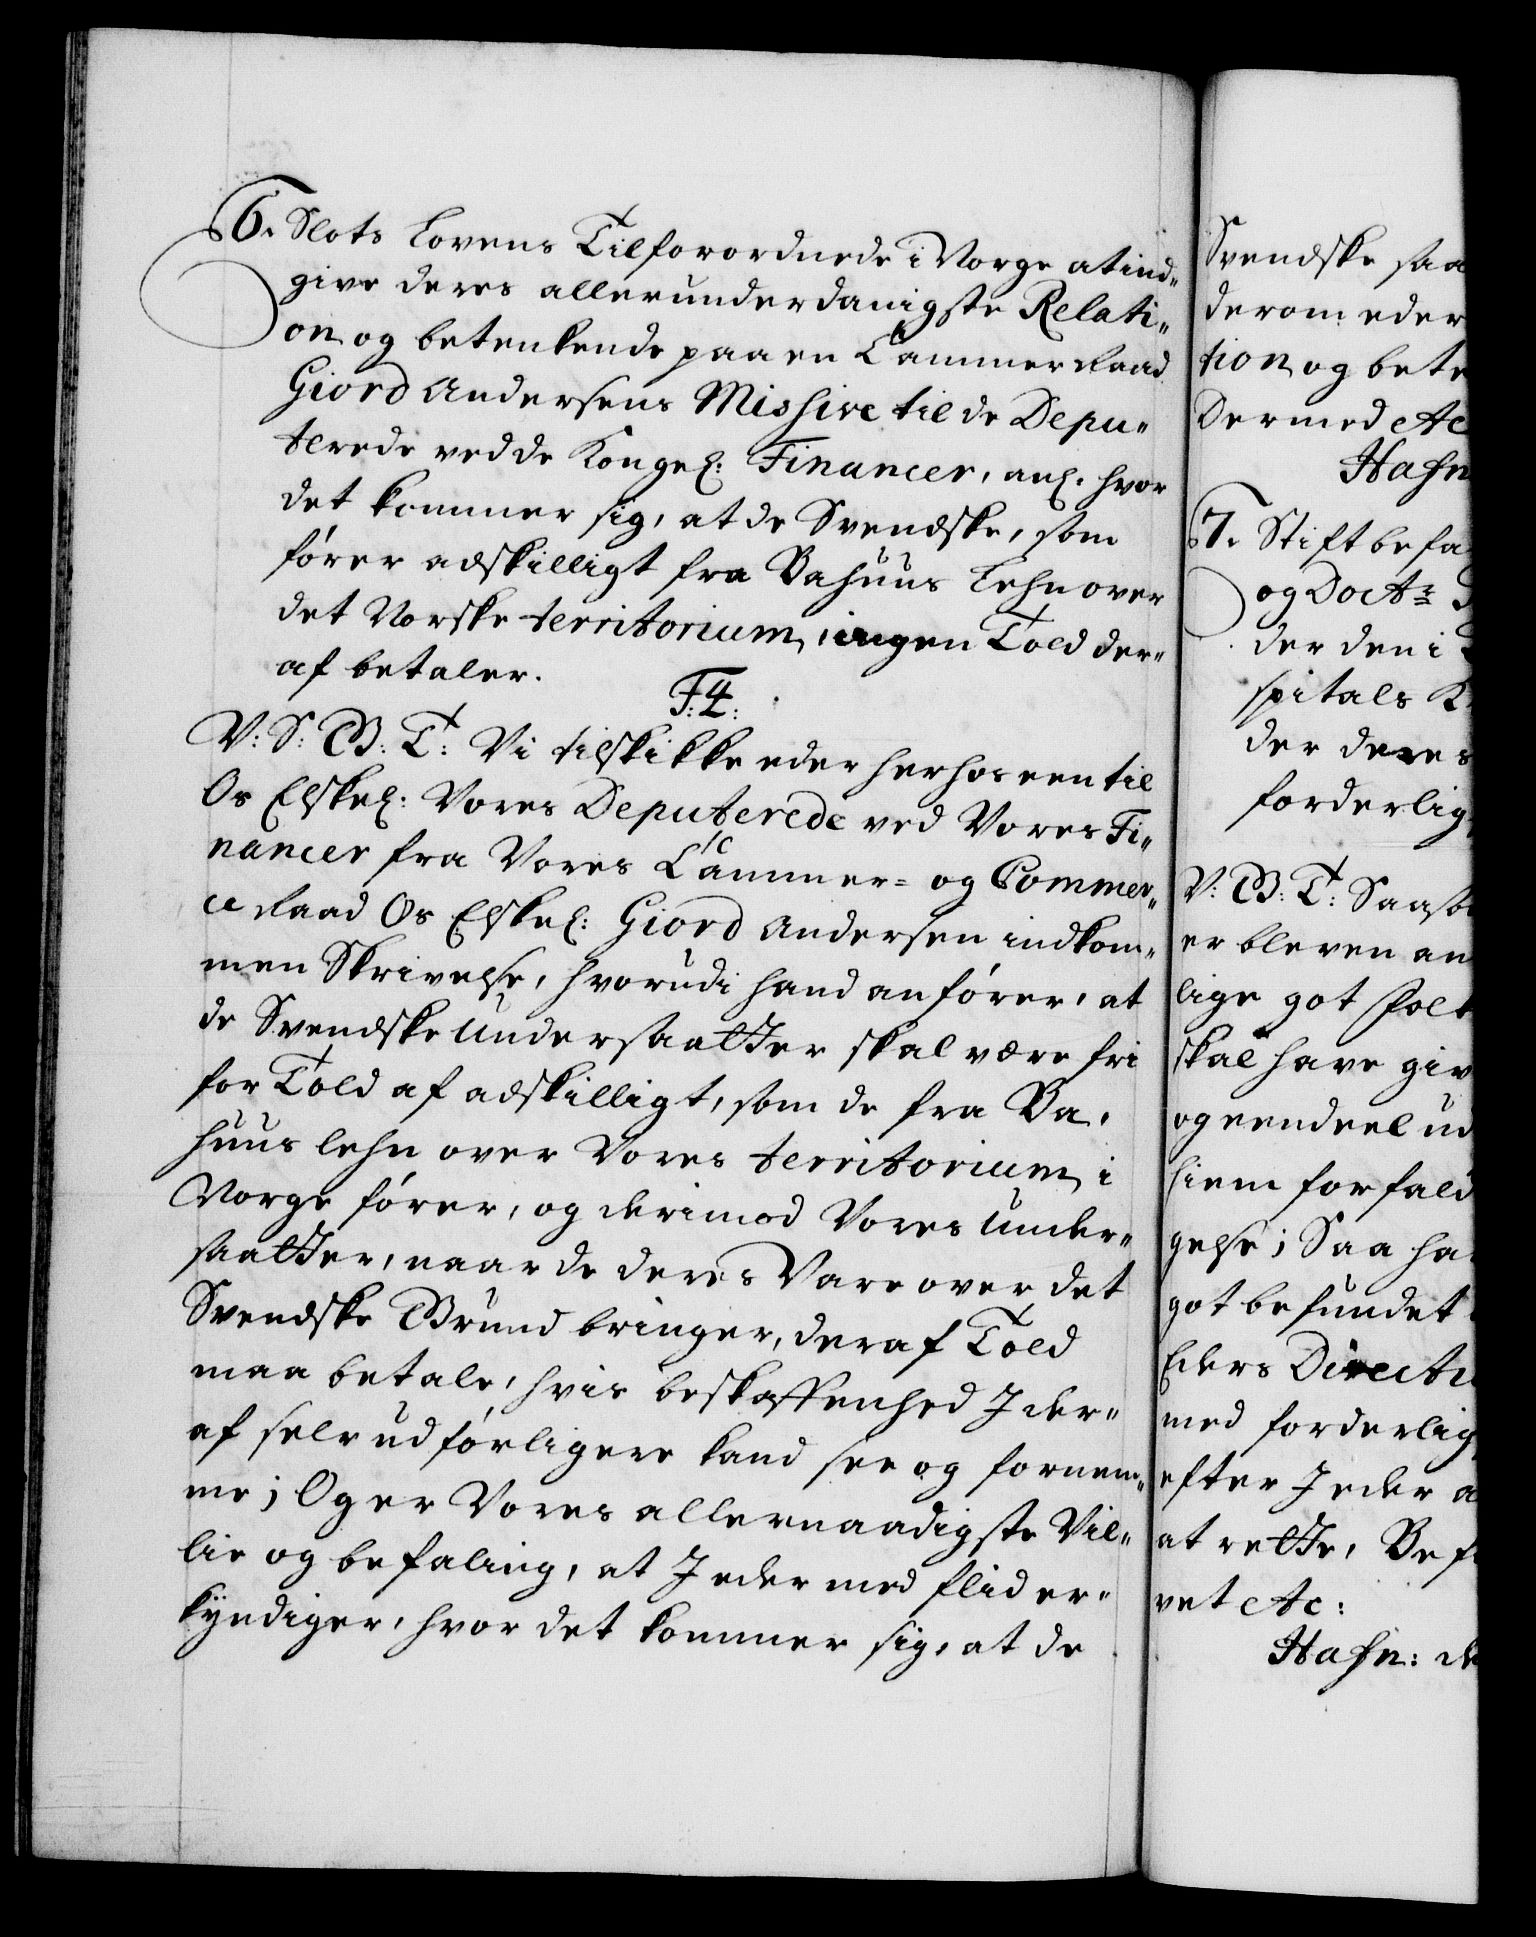 6. Slots Lovens Tilforordnede i Norge at ind„
give deres allerunderdanigste Relati„
on og betenkende paa en Cammer Raad
Giord Andersens Missive til de Depu„
terede ved de Kongel: Financer, anl. hvor
det kommer sig, at de Svendske, som
fører adskilligt fra Bahuus Lehn over
det Norske territorium, ingen Told der„
af betaler.
F: 4.
V: S: G: T: Vi tilskikke eder herhos een til
Os Elskel: Vores Deputerede ved Vores Fi„
nancer fra Vores Cammer= og Commer„
ce Raad Os Elskel: Giord Andersen indkom„
men Skrivelse, hvorudi hand anfører, at
de Svendske Undersaatter skal være fri
for Told af adskilligt, som de fra Ba„
huus lehn over Vores territorium i
Norge fører, og derimod Vores Under„
saatter, naar de deres Vare over det
Svendske Grund bringer, deraf Told
maa betale, hvis beskaffenhed I der„
af selv udførligere kand see og fornem„
me; Og er Vores allernaadigste Vil„
lie og befaling, at I eder med flid er„
kyndiger, hvor det kommer sig, at de
Svendske saa
derom eder
tion og bete
Dermed Ac
Hafn
7. Stift befa
og Doct:
der den i
spitals
der deres
forderlig
V: G: T: Saaso
er bleven an
lige got Folk
skal have giv
og eendeel ud
hiem forfald
gelse; Saa ha
got befundet
Eders Directi
med forderlig
efter I eder a
at rette, Bef
vet Ac:
Hafn: d